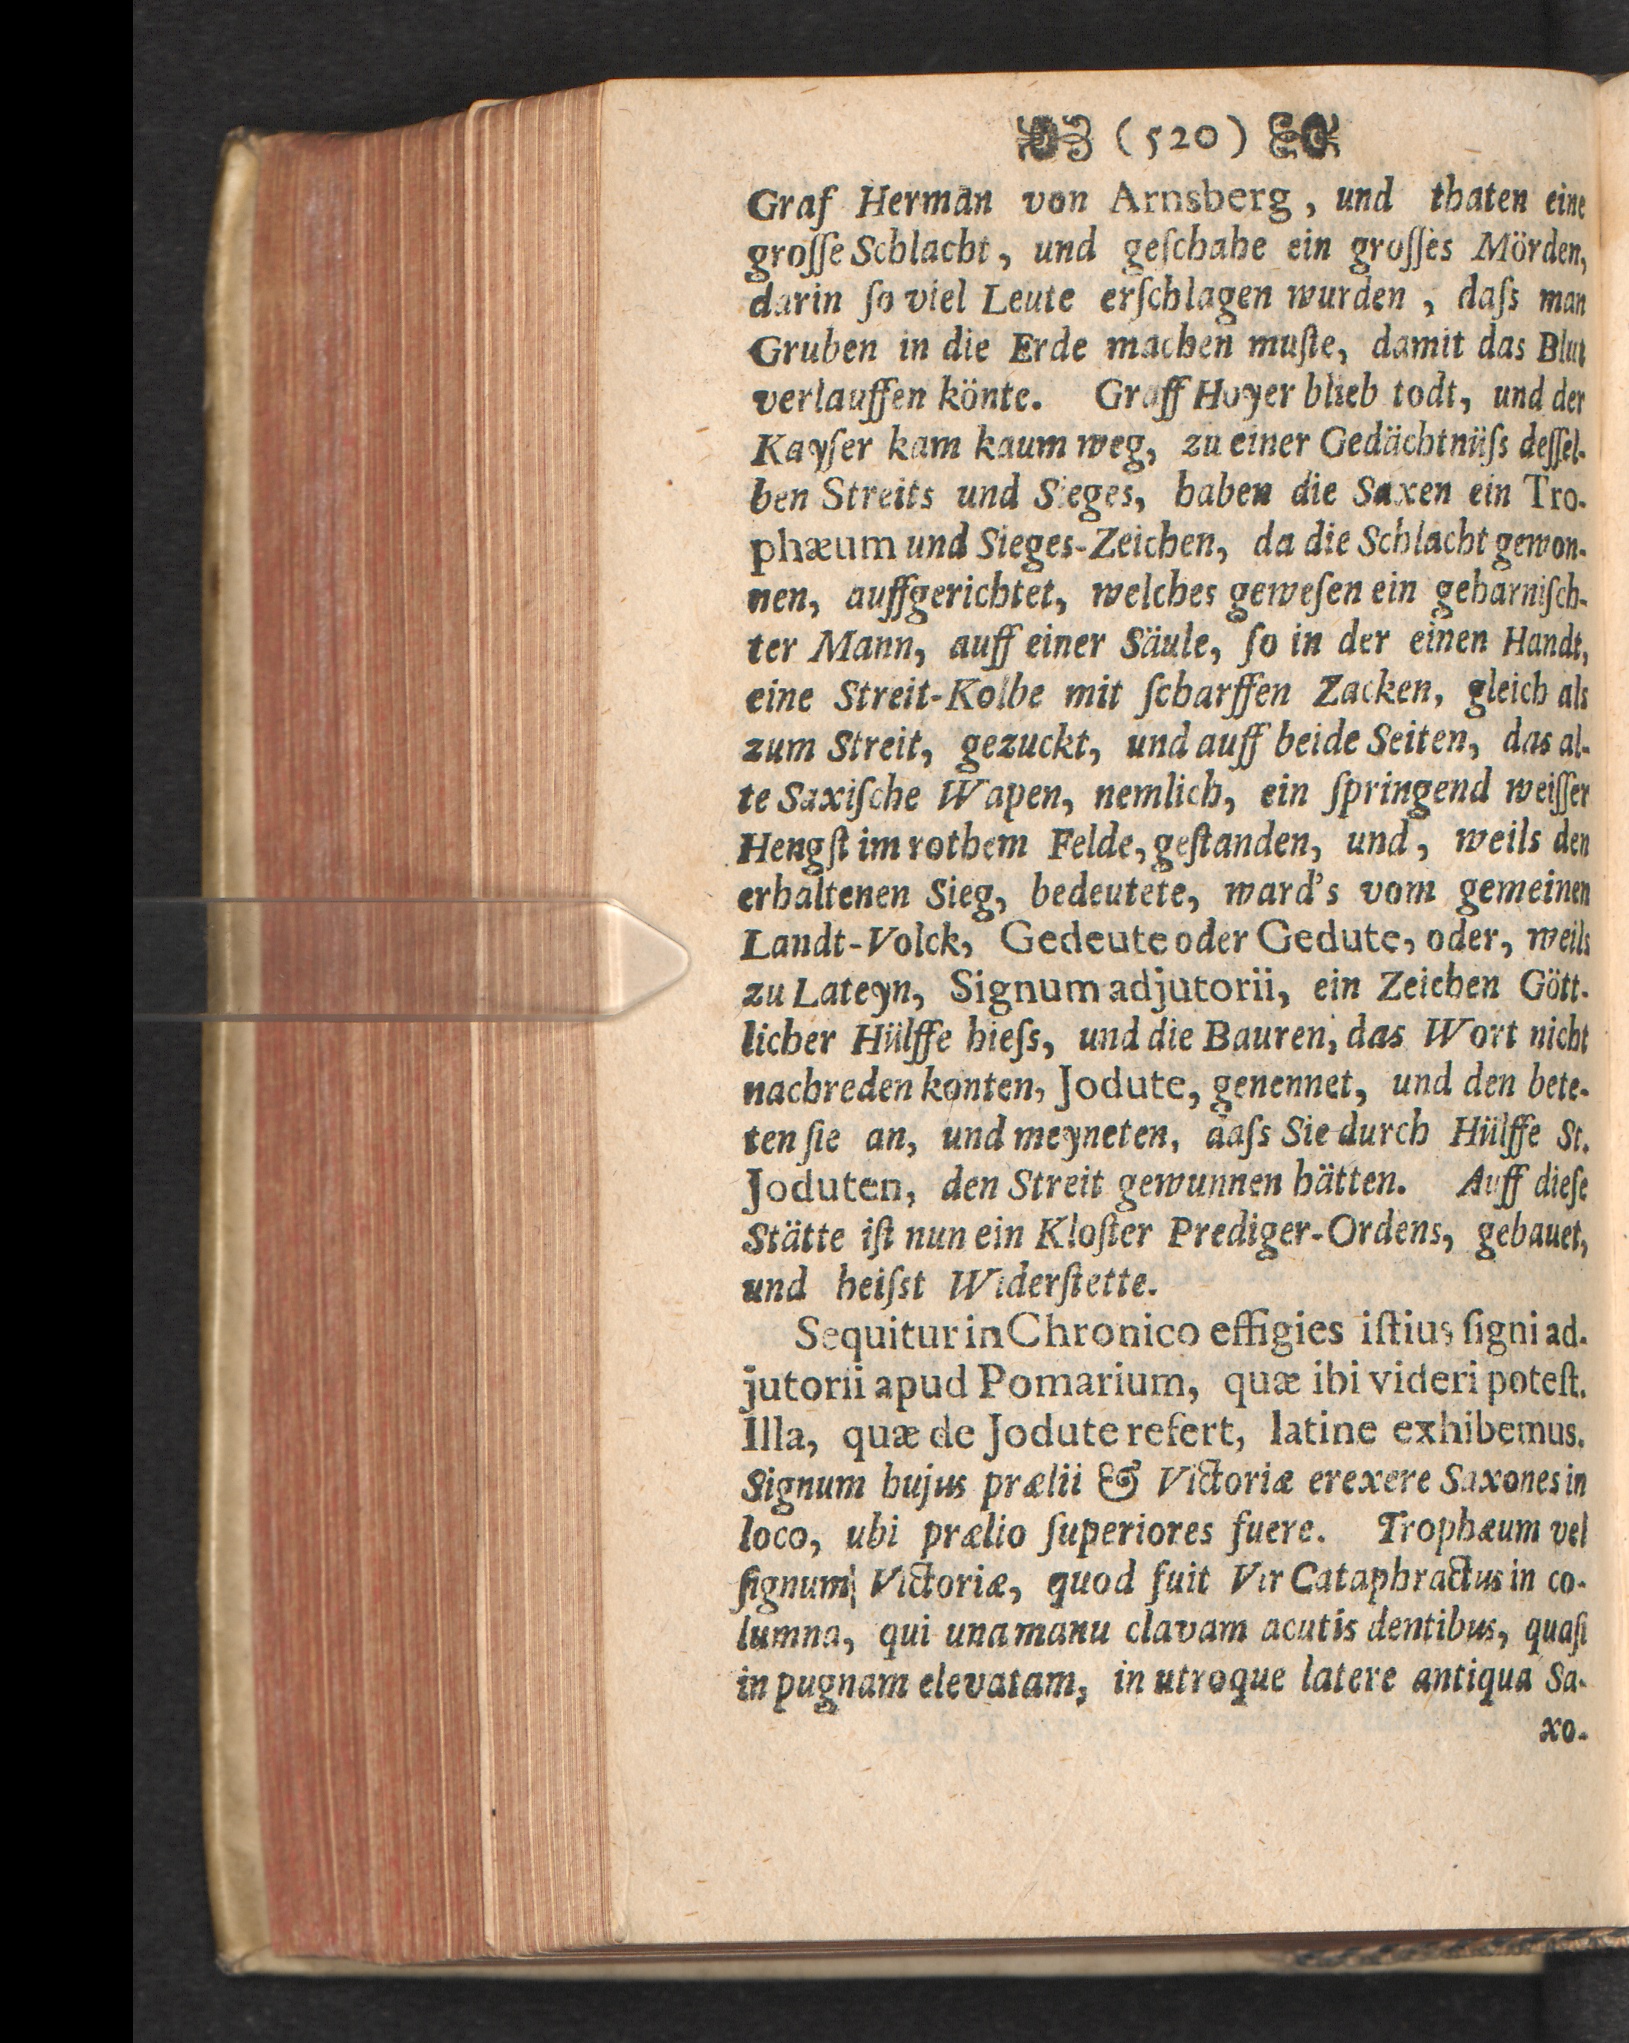 (520)
Graf Herman von Arnsberg, und thaten eine
grosse Schlacht, und geſchahe ein groſſes Mörden,
darin ſo viel Leute erſchlagen wurden, daſs man
Gruben in die Erde machen muſte, damit das Blut
verlauffen könte. Graff Hoyer blieb todt, und der
Kayſer kam kaum weg, zu einer Gedächtnüſs deſſel-
ben Streits und Sieges, haben die Saxen ein Tro-
phæum und Sieges-Zeichen, da die Schlacht gewon-
nen, auffgerichtet, welches geweſen ein geharniſch-
ter Mann, auff einer Säule, ſo in der einen Handt,
eine Streit-Kolbe mit ſcharffen Zacken, gleich als
zum Streit, gezuckt, und auff beide Seiten, das al-
te Saxiſche Wapen, nemlich, ein ſpringend weiſſer
Hengſt im rothem Felde, geſtanden, und, weils den
erhaltenen Sieg, bedeutete, ward's vom gemeinen
Landt-Volck, Gedeute oder Gedute, oder, weils
zu Lateyn, Signum adjutorii, ein Zeichen Gött-
licher Hülffe hieſs, und die Bauren, das Wort nicht
nachreden konten, Jodute, genennet, und den bete-
ten ſie an, und meyneten, daſs Sie durch Hülffe St.
Joduten, den Streit gewunnen hätten. Auff dieſe
Stätte iſt nun ein Kloſter Prediger-Ordens, gebauet,
und heiſst Widerſtette.
Sequitur in Chronico effigies iſtius ſigni ad-
jutorii apud Pomarium, quæ ibi videri poteſt.
Illa, quæ de Jodute refert, latine exhibemus.
Signum hujus prælii & Victoriæ erexere Saxones in
loco, ubi prælio ſuperiores fuere. Trophæum vel
ſignum Victoriæ, quod fuit Vir Cataphractus in co-
lumna, qui una manu clavam acutis dentibus, quaſi
in pugnam elevatam, in utroque latere antiqua Sa-
xo-